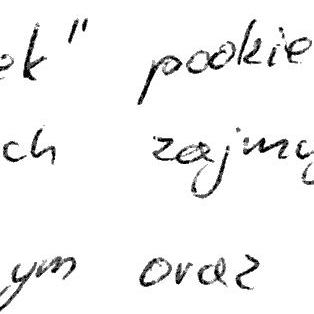 ek" pookie
ch zajmy
ym oraz